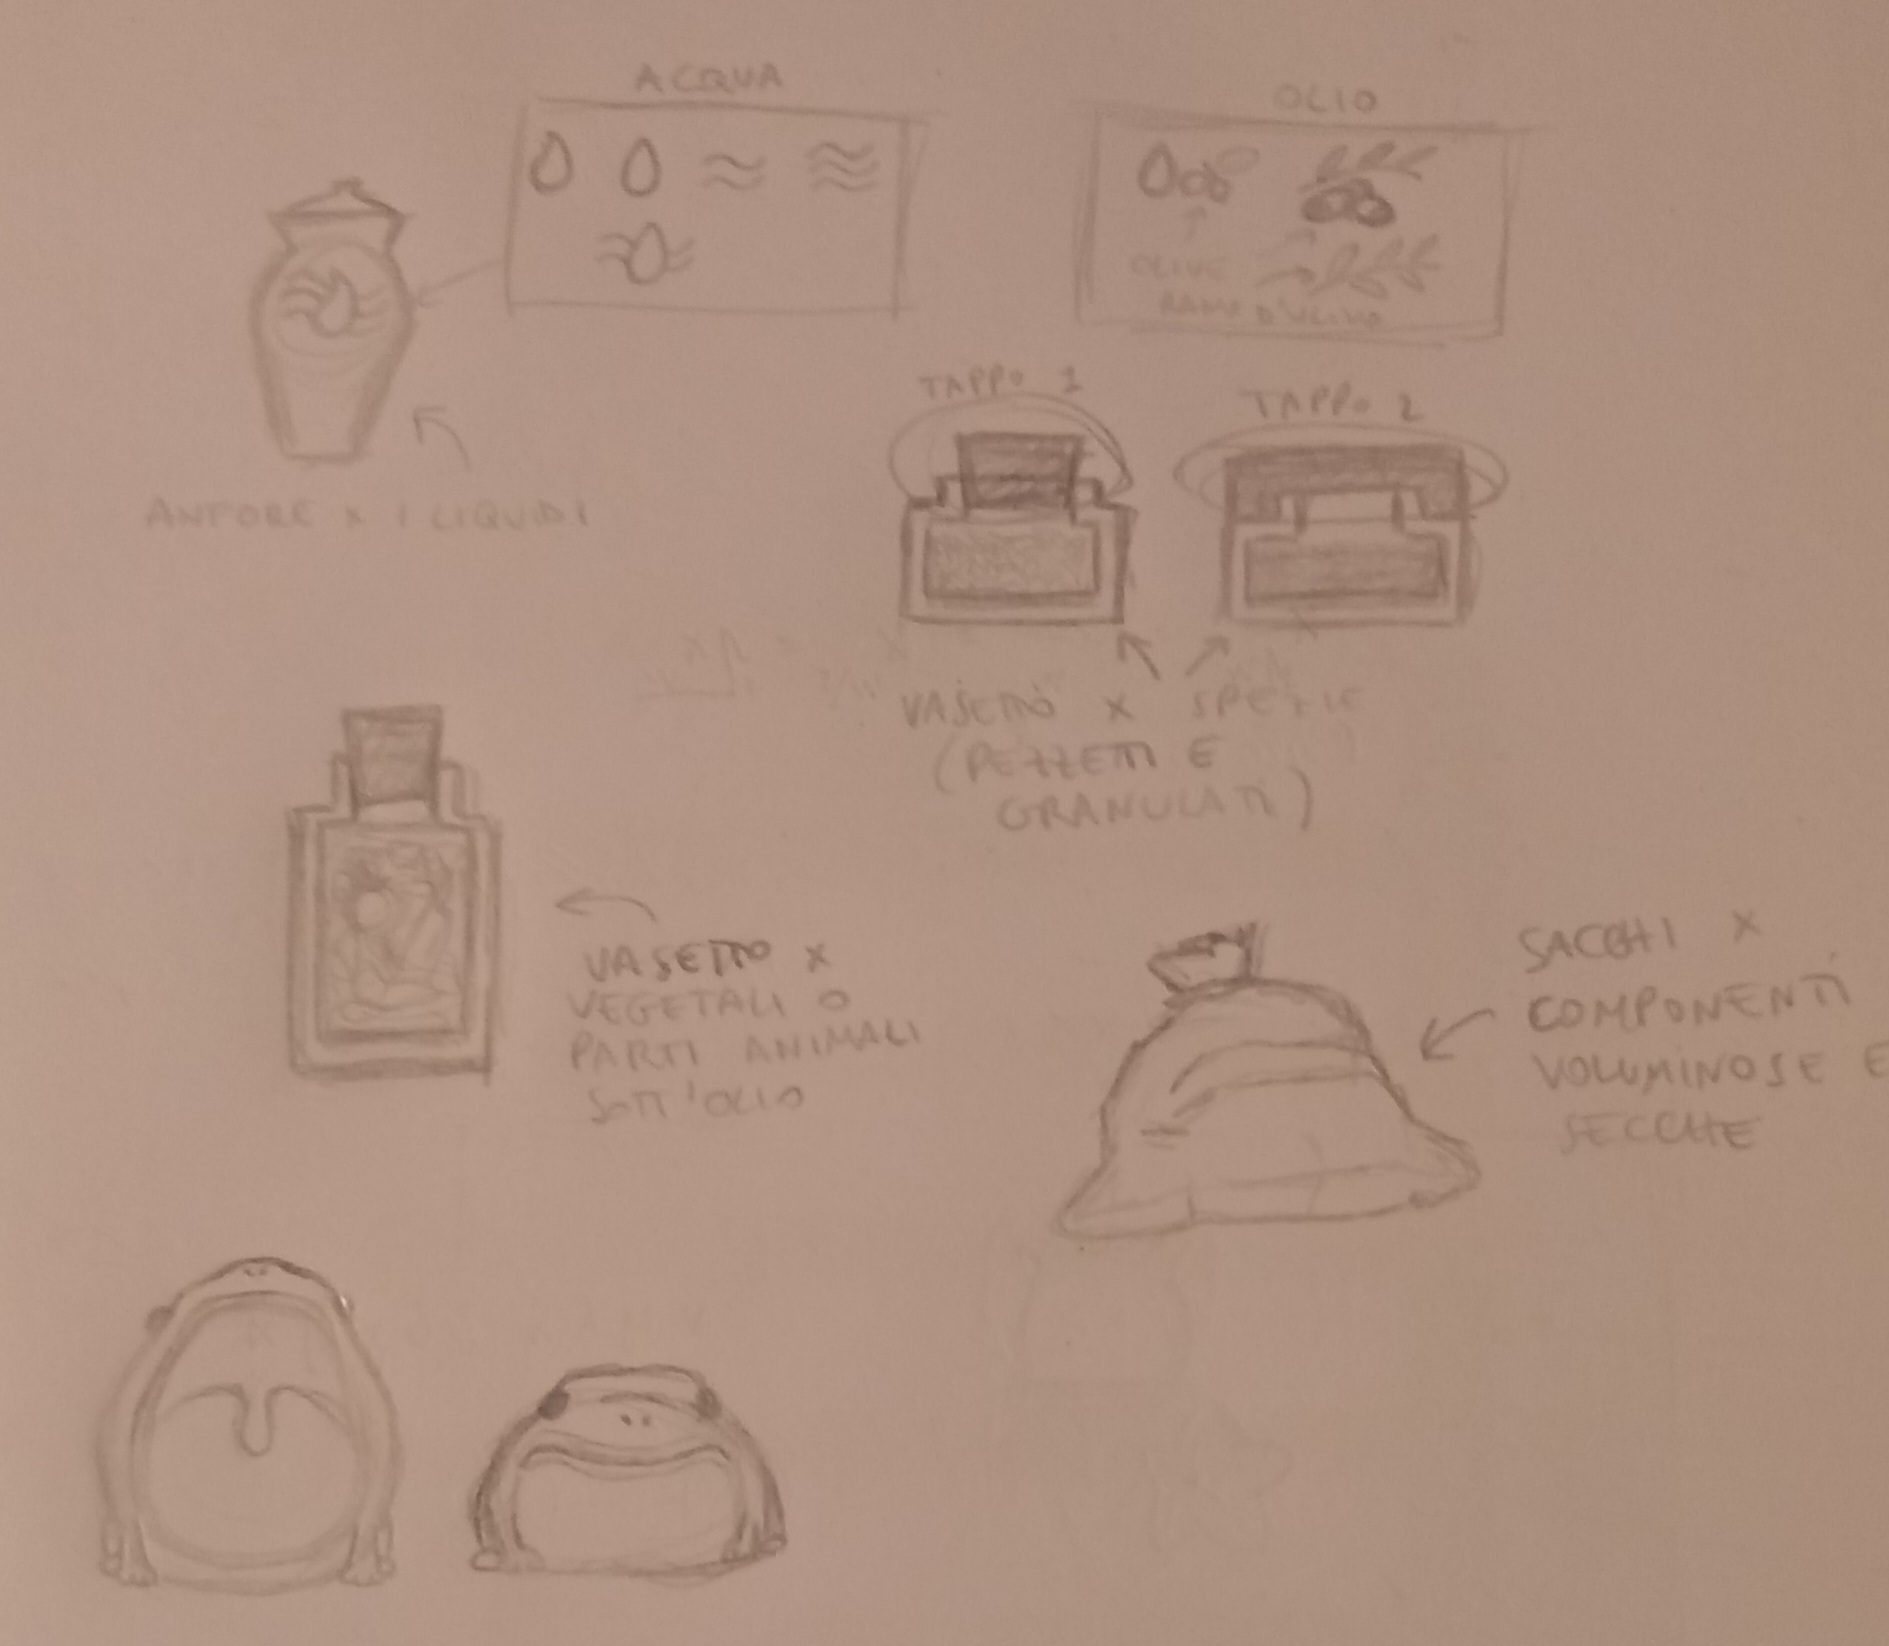 ACQUA
OLIO
OLIVE
RAMO D'ULIVO
ANFORE X I LIQUIDI
TAPPO 1
TAPPO 2
VASETTO X SPEZIE
(PEZZETTI E
GRANULATI)
VASETTO X
VEGETALI O
PARTI ANIMALI
SOTT'OLIO
SACCHI X
COMPONENTI
VOLUMINOSE E
SECCHE